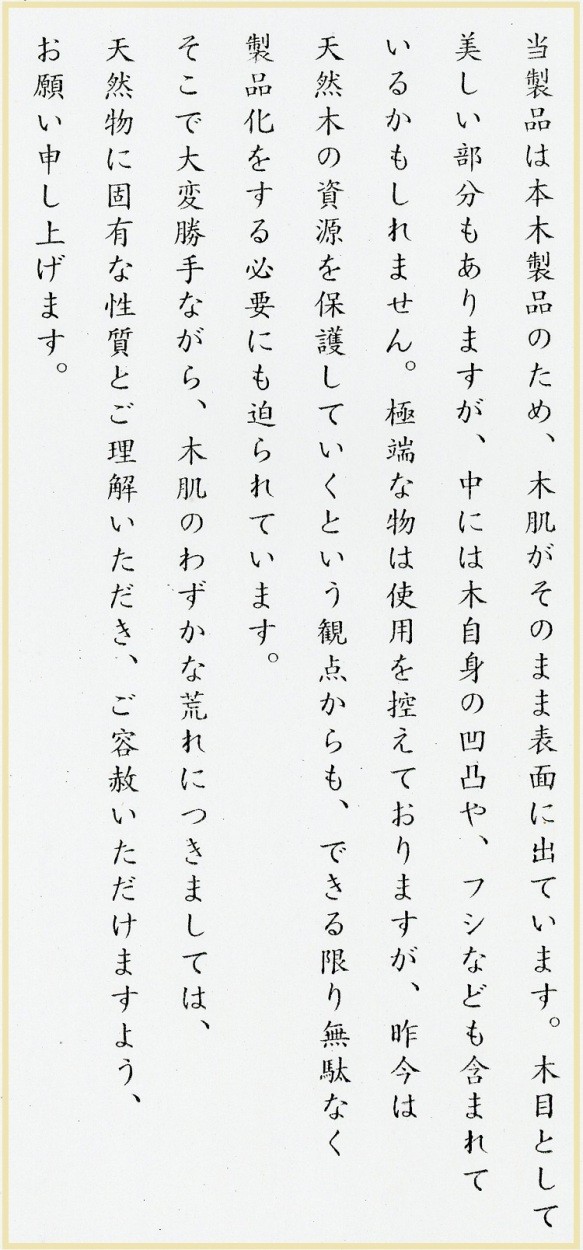 当製品は本木製品のため、木肌がそのまま表面に出ています。木目として
美しい部分もありますが、中には木自身の凹凸や、フシなども含まれて
いるかもしれません。極端な物は使用を控えておりますが、昨今は
天然木の資源を保護していくという観点からも、できる限り無駄なく
製品化をする必要にも迫られています。
そこで大変勝手ながら、木肌のわずかな荒れにつきましては、
天然物に固有な性質とご理解いただき、ご容赦いただけますよう、
お願い申し上げます。